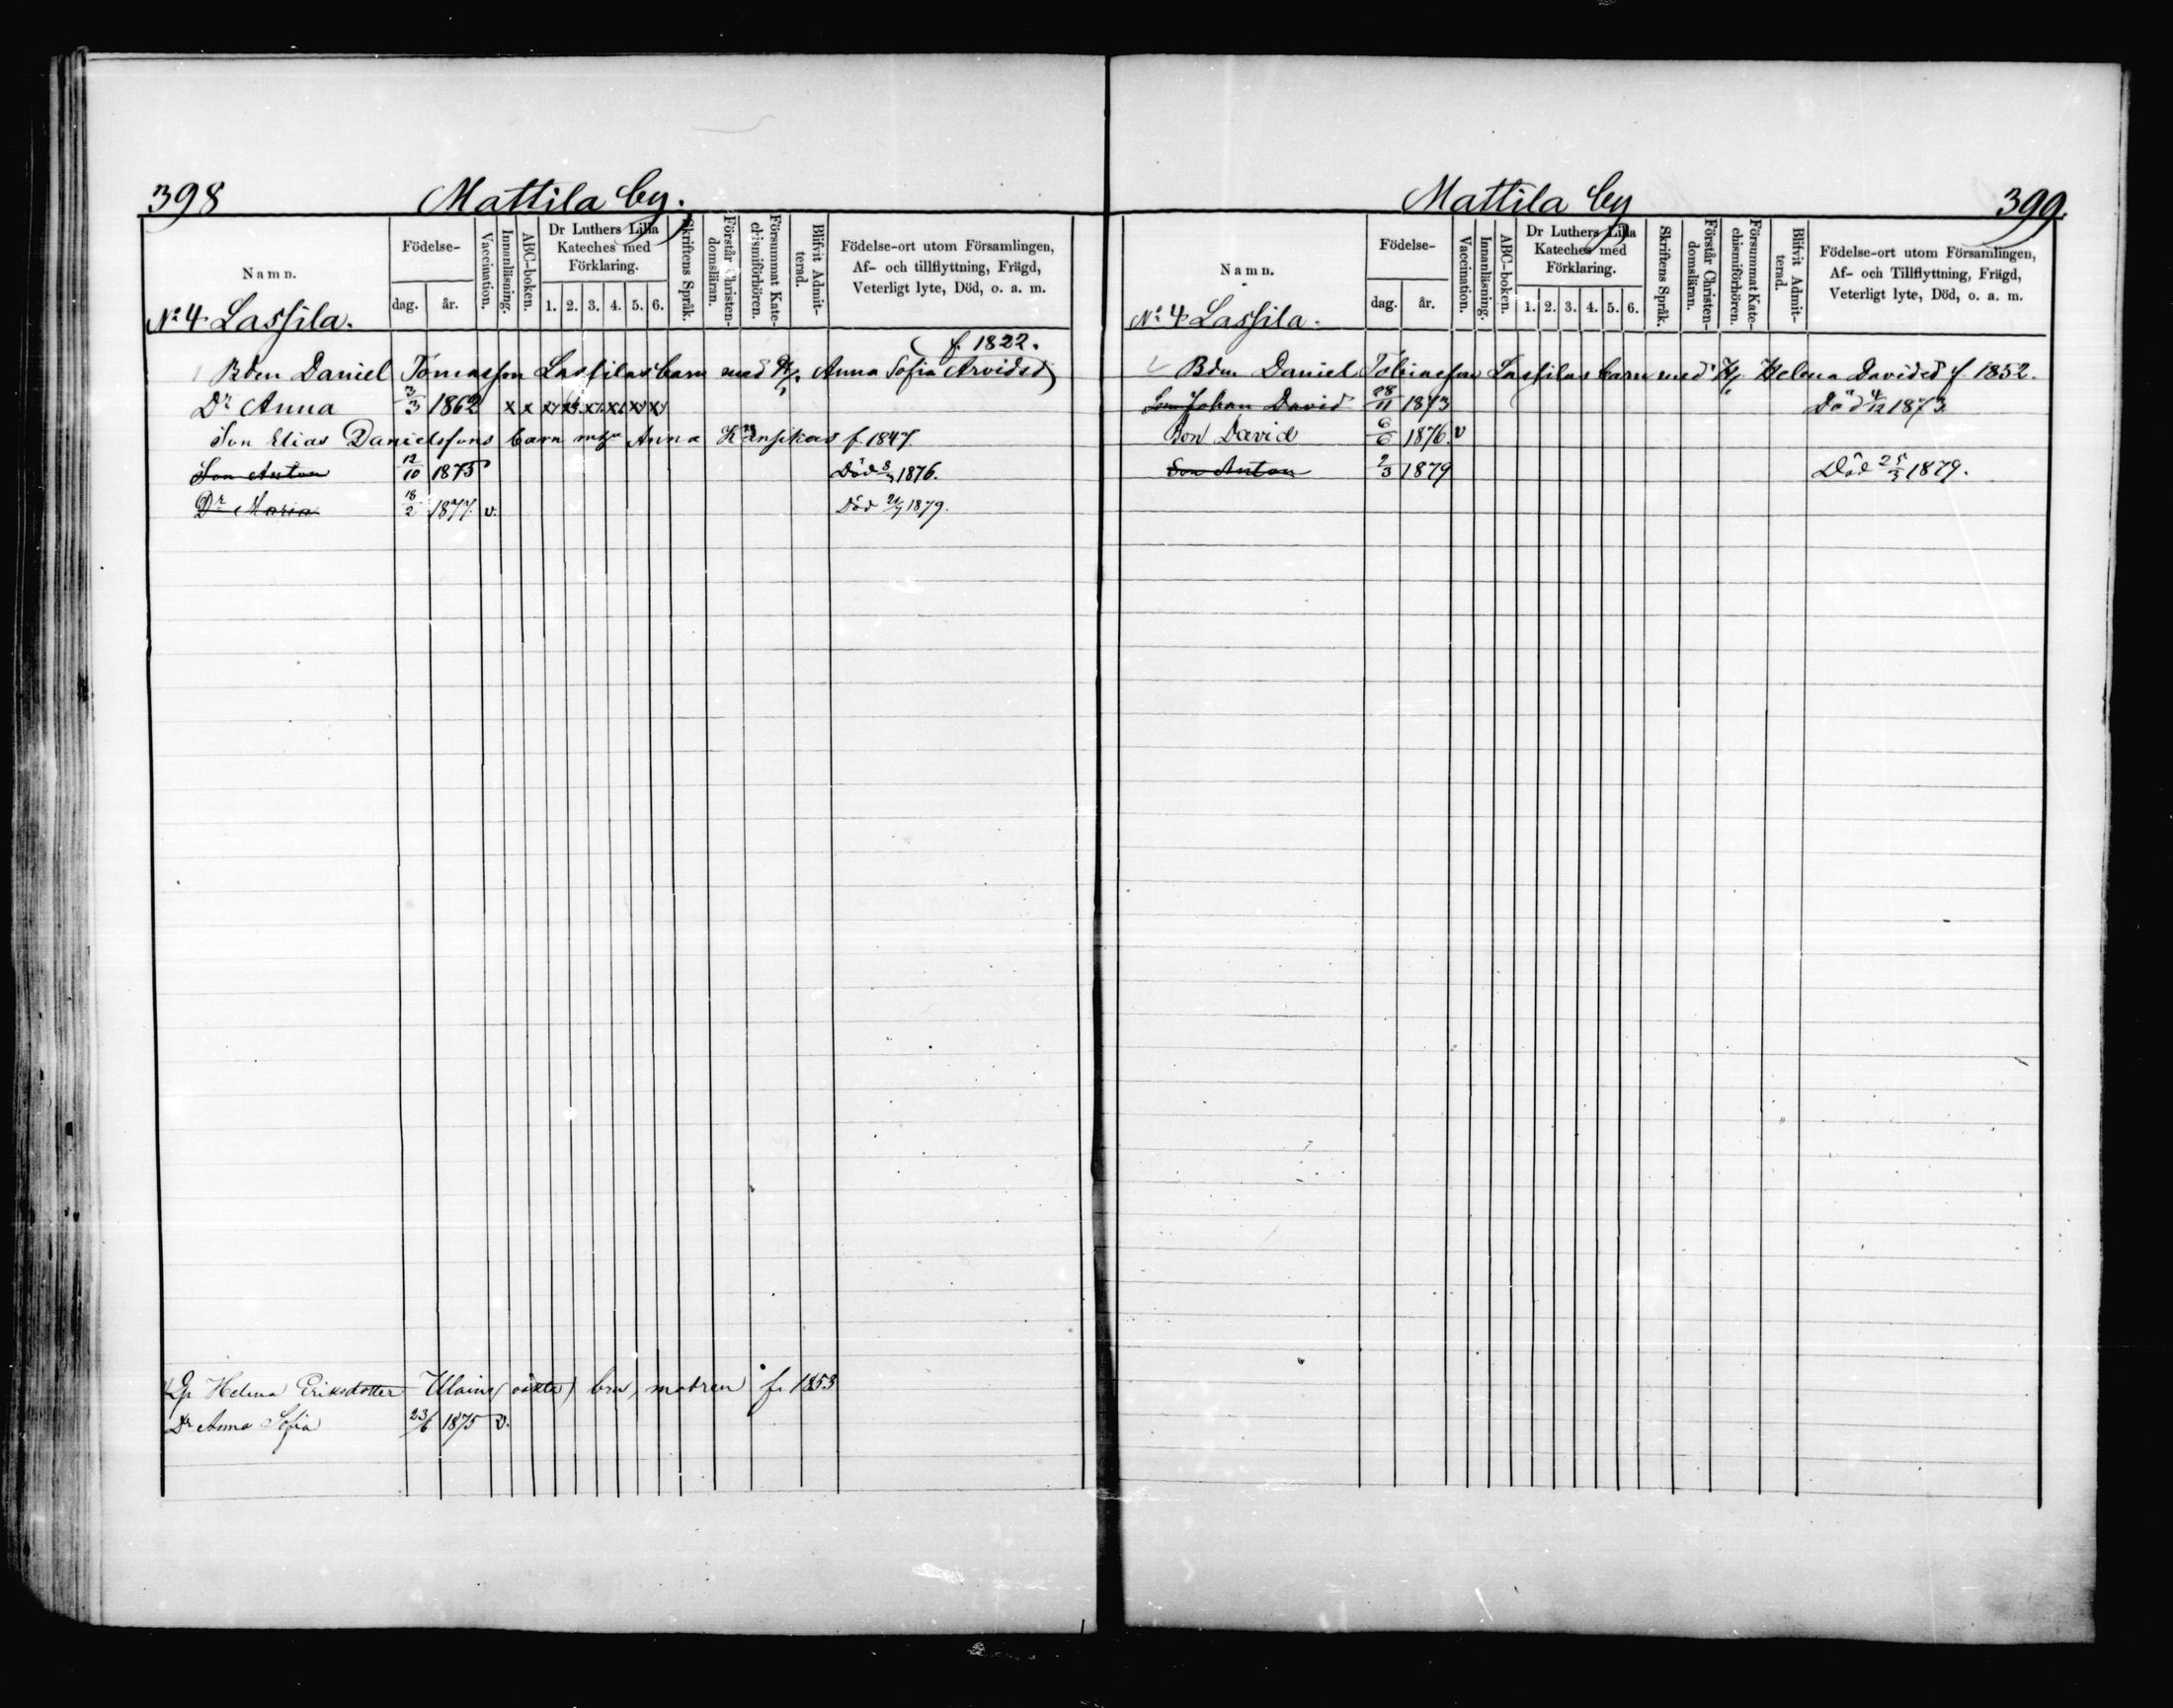 398 Mattila by.
Namn. Födelse- dag. år. Vaccination. Innanläsning. ABC-boken. Dr Luthers Lilla Kateches med Förklaring. 1. 2. 3. 4. 5. 6. Skriftens Språk. Förstår Christen-domsläran. Försummat Kate-chismiförhören. Blifvit Admit-terad. Födelse-ort utom Församlingen, Af- och tillflyttning, Frägd, Veterligt lyte, Död, o. a. m.
No 4 Lassila.
f. 1822.
Bdm Daniel Tomasson Lassilas barn med Anna Sofia Arvidsd
Dr Anna 3/3 1862 x x x x x x x x
Son Elias Danielssons barn Anna f. 1847
Son Anton 12/10 1875 Död 1876.
Dr Maria 18/2 1877. v. Död 1879.
Helena Eriksdotter f. 1853
Dr Anna Sofia 23/6 1875 v.
Mattila by 399.
Namn. Födelse- dag. år. Vaccination. Innanläsning. ABC-boken. Dr Luthers Lilla Kateches med Förklaring. 1. 2. 3. 4. 5. 6. Skriftens Språk. Förstår Christen-domsläran. Försummat Kate-chismiförhören. Blifvit Admit-terad. Födelse-ort utom Församlingen, Af- och Tillflyttning, Frägd, Veterligt lyte, Död, o. a. m.
No 4 Lassila.
Bdm Daniel Tobiasson Lassilas barn med Helena Davidsd f. 1852.
Son Johan David 28/11 1873 Död 4/12 1873.
Son David 6/6 1876. v
Son Anton 2/3 1879 Död 25/3 1879.